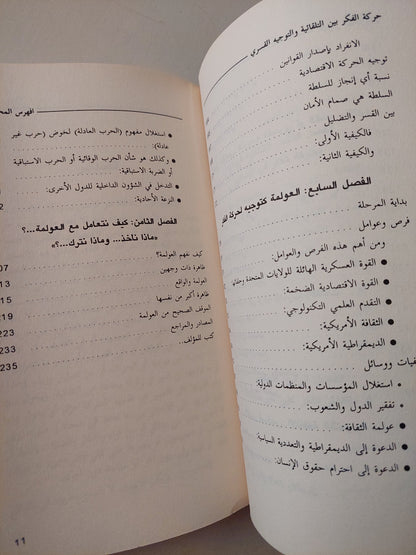 حركة الفكر بين التلقائية والتوجيه القسري
الانفراد بإصدار القوانين
توجيه الحركة الاقتصادية
نسبة أي إنجاز للسلطة
السلطة هي صمام الأمان
بين القسر والتضليل
فالكيفية الأولى:
والكيفية الثانية:
الفصل السابع: العولمة كتوجيه لحركة
بداية المرحلة
فرص وعوامل
ومن أهم هذه الفرص والعوامل:
● القوة العسكرية الهائلة للولايات المتحدة وحلفائها
● القوة الاقتصادية الضخمة:
● التقدم العلمي التكنولوجي:
● الثقافة الأمريكية:
● الديمقراطية الأمريكية:
ووسائل
● استغلال المؤسسات والمنظمات الدولية:
● تفقير الدول والشعوب:
● عولمة الثقافة:
● الدعوة إلى الديمقراطية والتعددية السياسية
● الدعوة إلى احترام حقوق الإنسان:
فهرس
● استغلال مفهوم (الحرب العادلة) لخوض (حرب غير
عادلة):
● وكذلك هو شأن الحرب الوقائية أو الحرب الاستباقية
أو الضربة الاستباقية:
● التدخل في الشؤون الداخلية للدول الأخرى:
● النزعة الأحادية:
الفصل الثامن: كيف نتعامل مع العولمة...؟
«ماذا نأخذ... وماذا نترك...؟»
كيف نفهم العولمة؟ 07
ظاهرة ذات وجهين 13
العولمة والواقع 15
ظاهرة أكبر من نفسها 219
الموقف الصحيح من العولمة 223
المصادر والمراجع 233
كتب للمؤلف 235
11